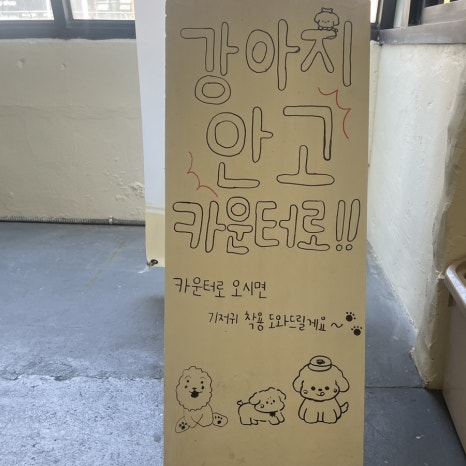 강아지
안고
카운터로!!
카운터로 오시면
기저귀 착용 도와드릴게요~